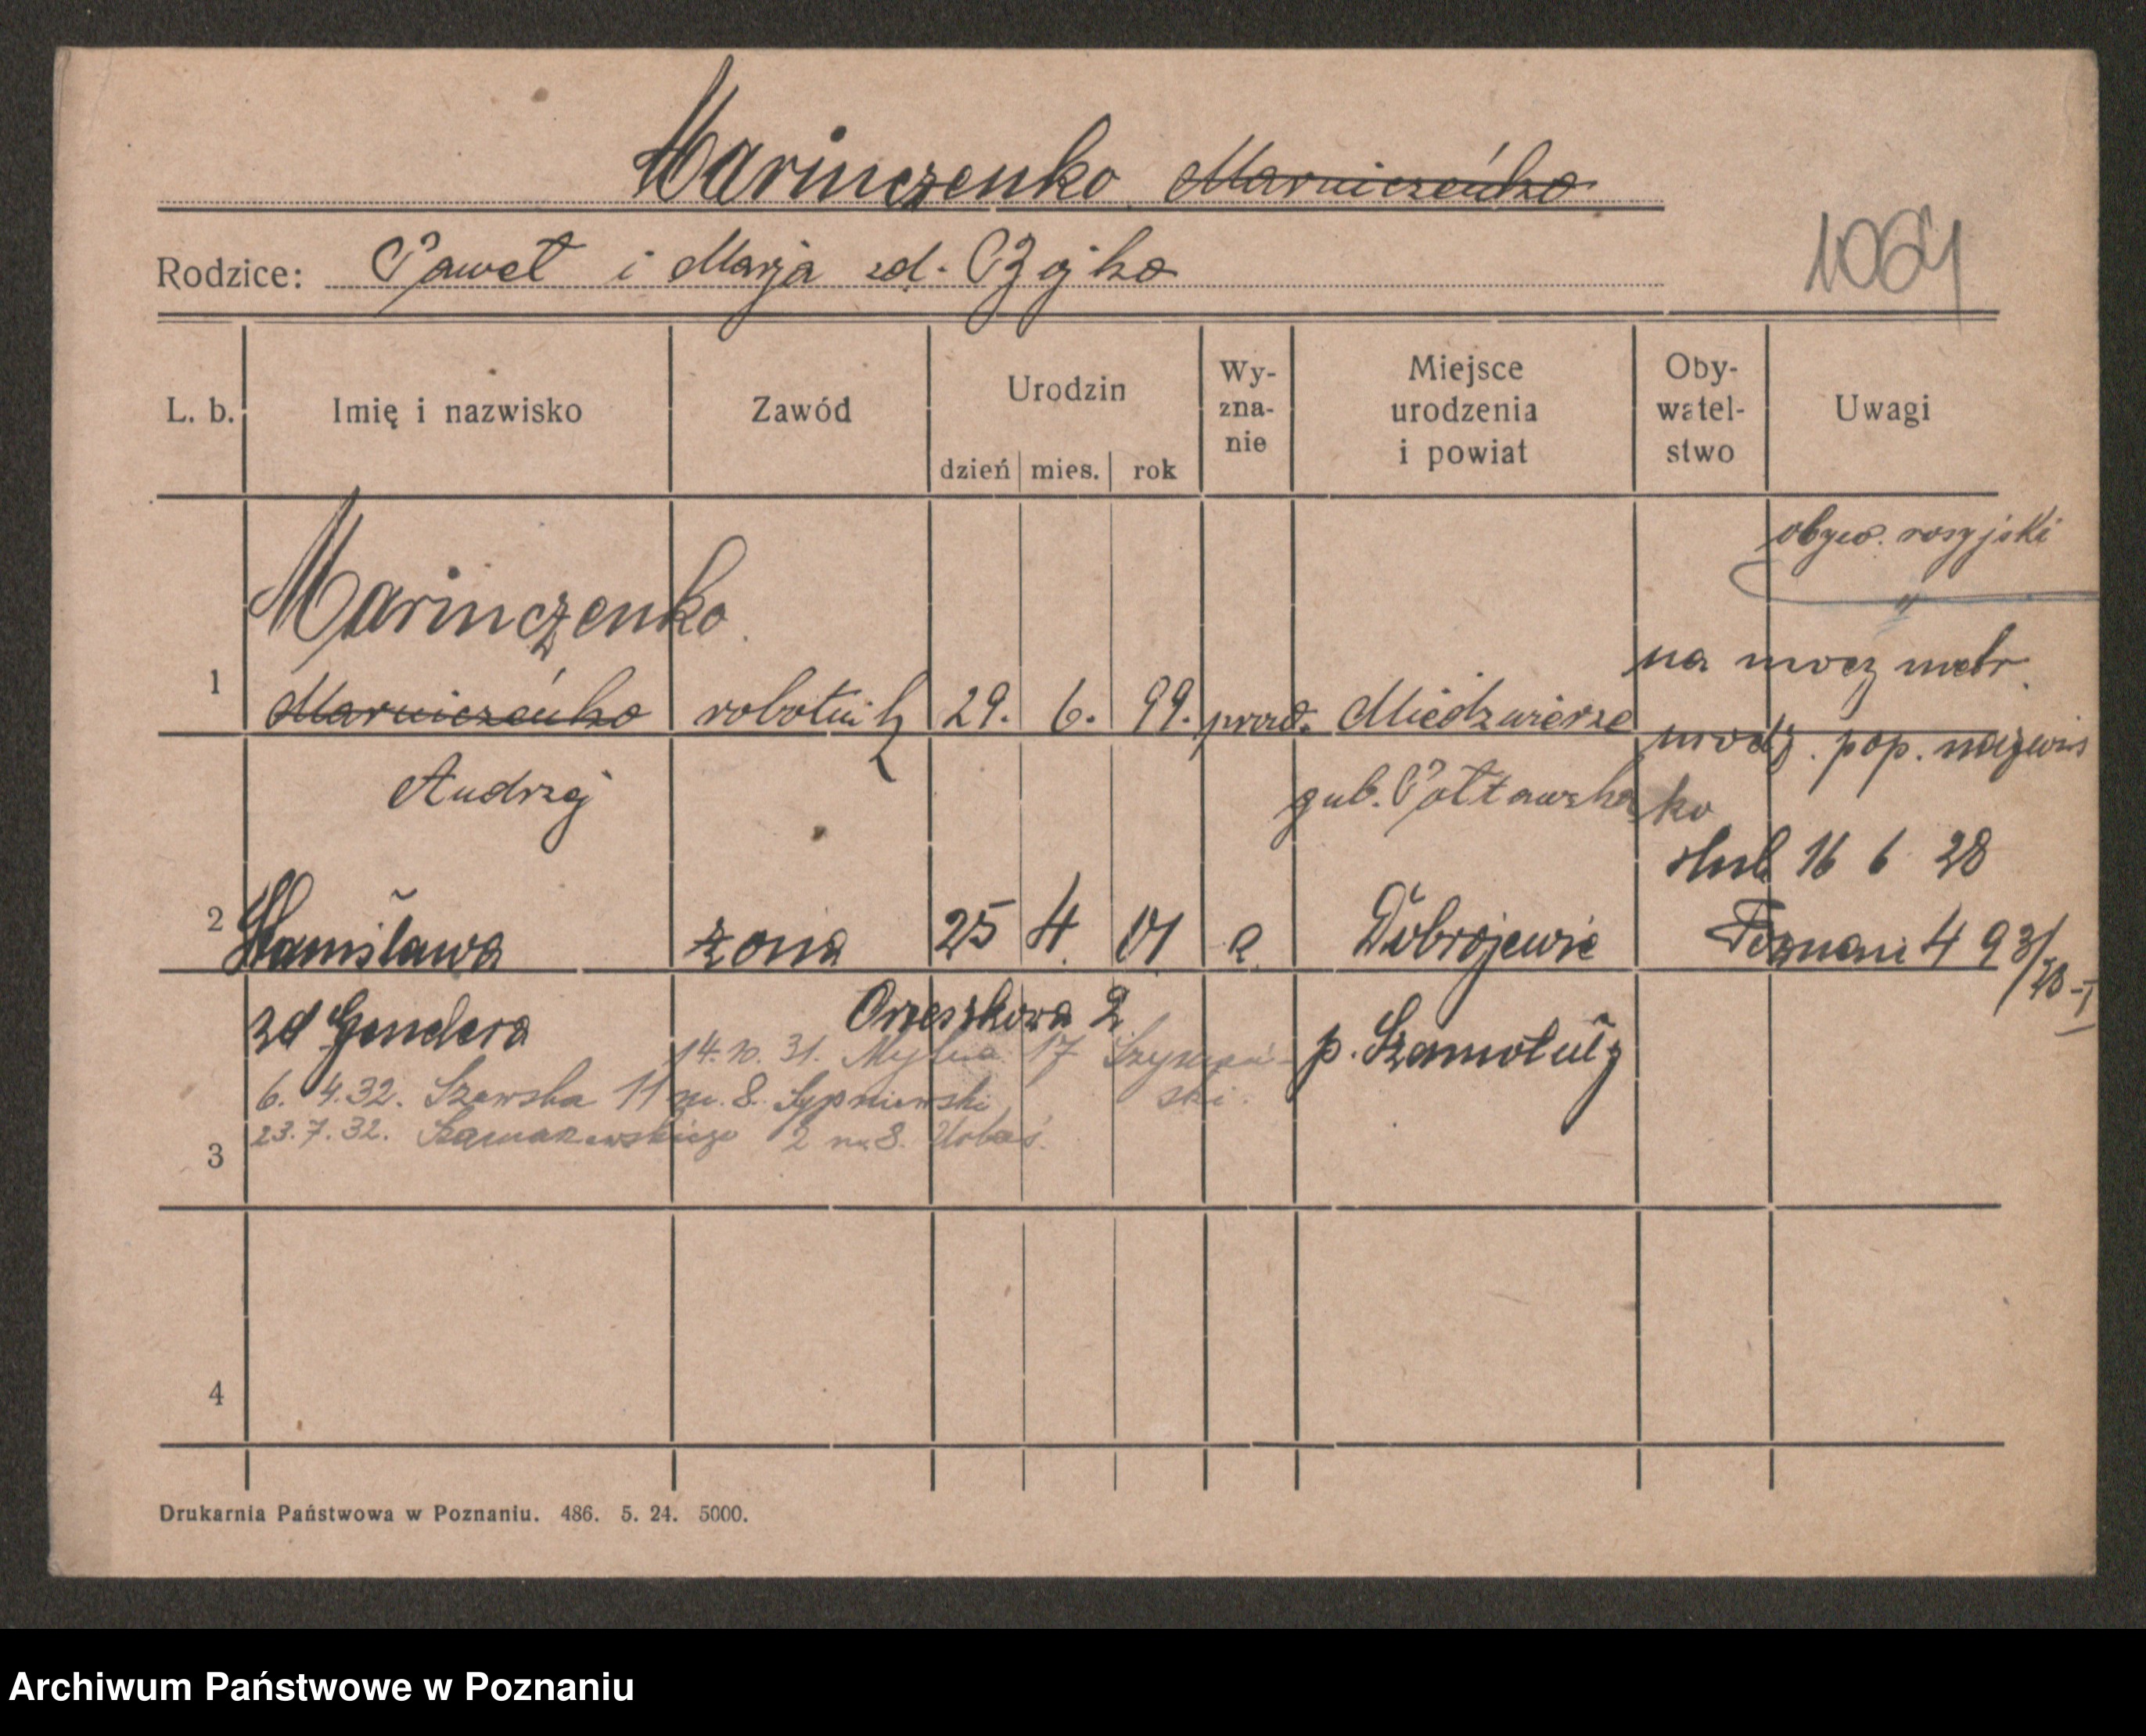 Marinczenko Marniczeńko
1064
Rodzice: Paweł i Marja zd. Bojko
L. b. Imię i nazwisko Zawód Urodzin Wy-zna-nie Miejsce urodzenia i powiat Oby-watel-stwo Uwagi
dzień mies. rok
obyw. rosyjski
Marinczenko
na mocy metr.
1 Marniczeńko robotnik 29. 6. 99. praw. Miedzwierze
urodz. pop. nazwis
Andrzej gub. Połtawska ko
ślub 16 6 28
2 Stanisława żona 25 4. 01 Dobrojewie Poznań 4 93/28-I
zd Gendera Orzeszkowa 2 p. Szamotuły
14. 10. 31. Mylna 17 Szymań-
6. 4. 32. Szewska 11 m. 8. Sypniewski ski.
23. 7. 32. Szamarzewskiego 2 m. 8.
3
4
Drukarnia Państwowa w Poznaniu. 486. 5. 24. 5000.
Archiwum Państwowe w Poznaniu